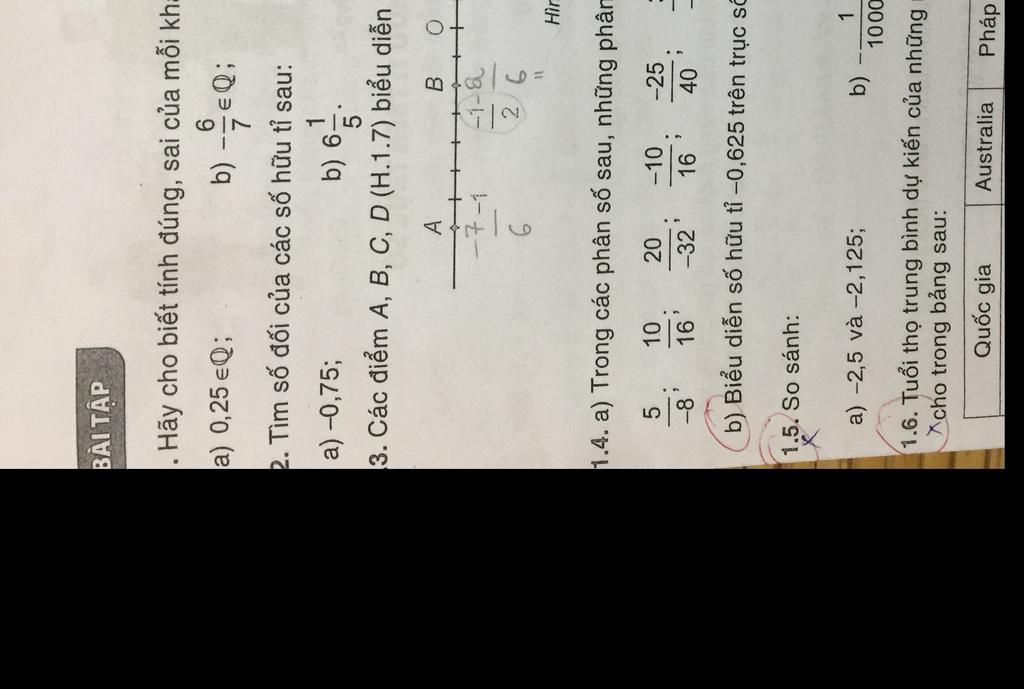 BÀI TẬP
. Hãy cho biết tính đúng, sai của mỗi
a) 0,25 ∈ ℚ; b) −6/7 ∈ ℚ;
2. Tìm số đối của các số hữu tỉ sau:
a) −0,75; b) 6 1/5.
.3. Các điểm A, B, C, D (H.1.7) biểu diễn
A B O
−7/6 −1 −1/2 −2/6
"
1.4. a) Trong các phân số sau, những phân
5/−8; 10/16; 20/−32; −10/16; −25/40;
b) Biểu diễn số hữu tỉ −0,625 trên trục số
1.5. So sánh:
a) −2,5 và −2,125; b) −1/1000
1.6. Tuổi thọ trung bình dự kiến của những
cho trong bảng sau:
Quốc gia Australia Pháp